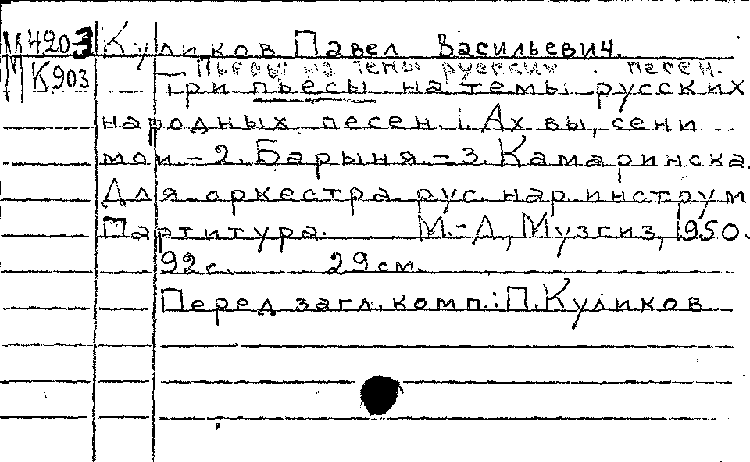 М4203 Куликов Павел Васильевич.
МК903 — Пьесы на темы русских . песен.
Три пьесы на темы русских
народных песен. 1. Ах вы, сени
мои – 2. Барыня – 3. Камаринска.
Для оркестра рус. нар. инструм
Партитура. М.-Л., Музгиз, 1950.
92 с. 29 см.
Перед загл. комп.: П. Куликов